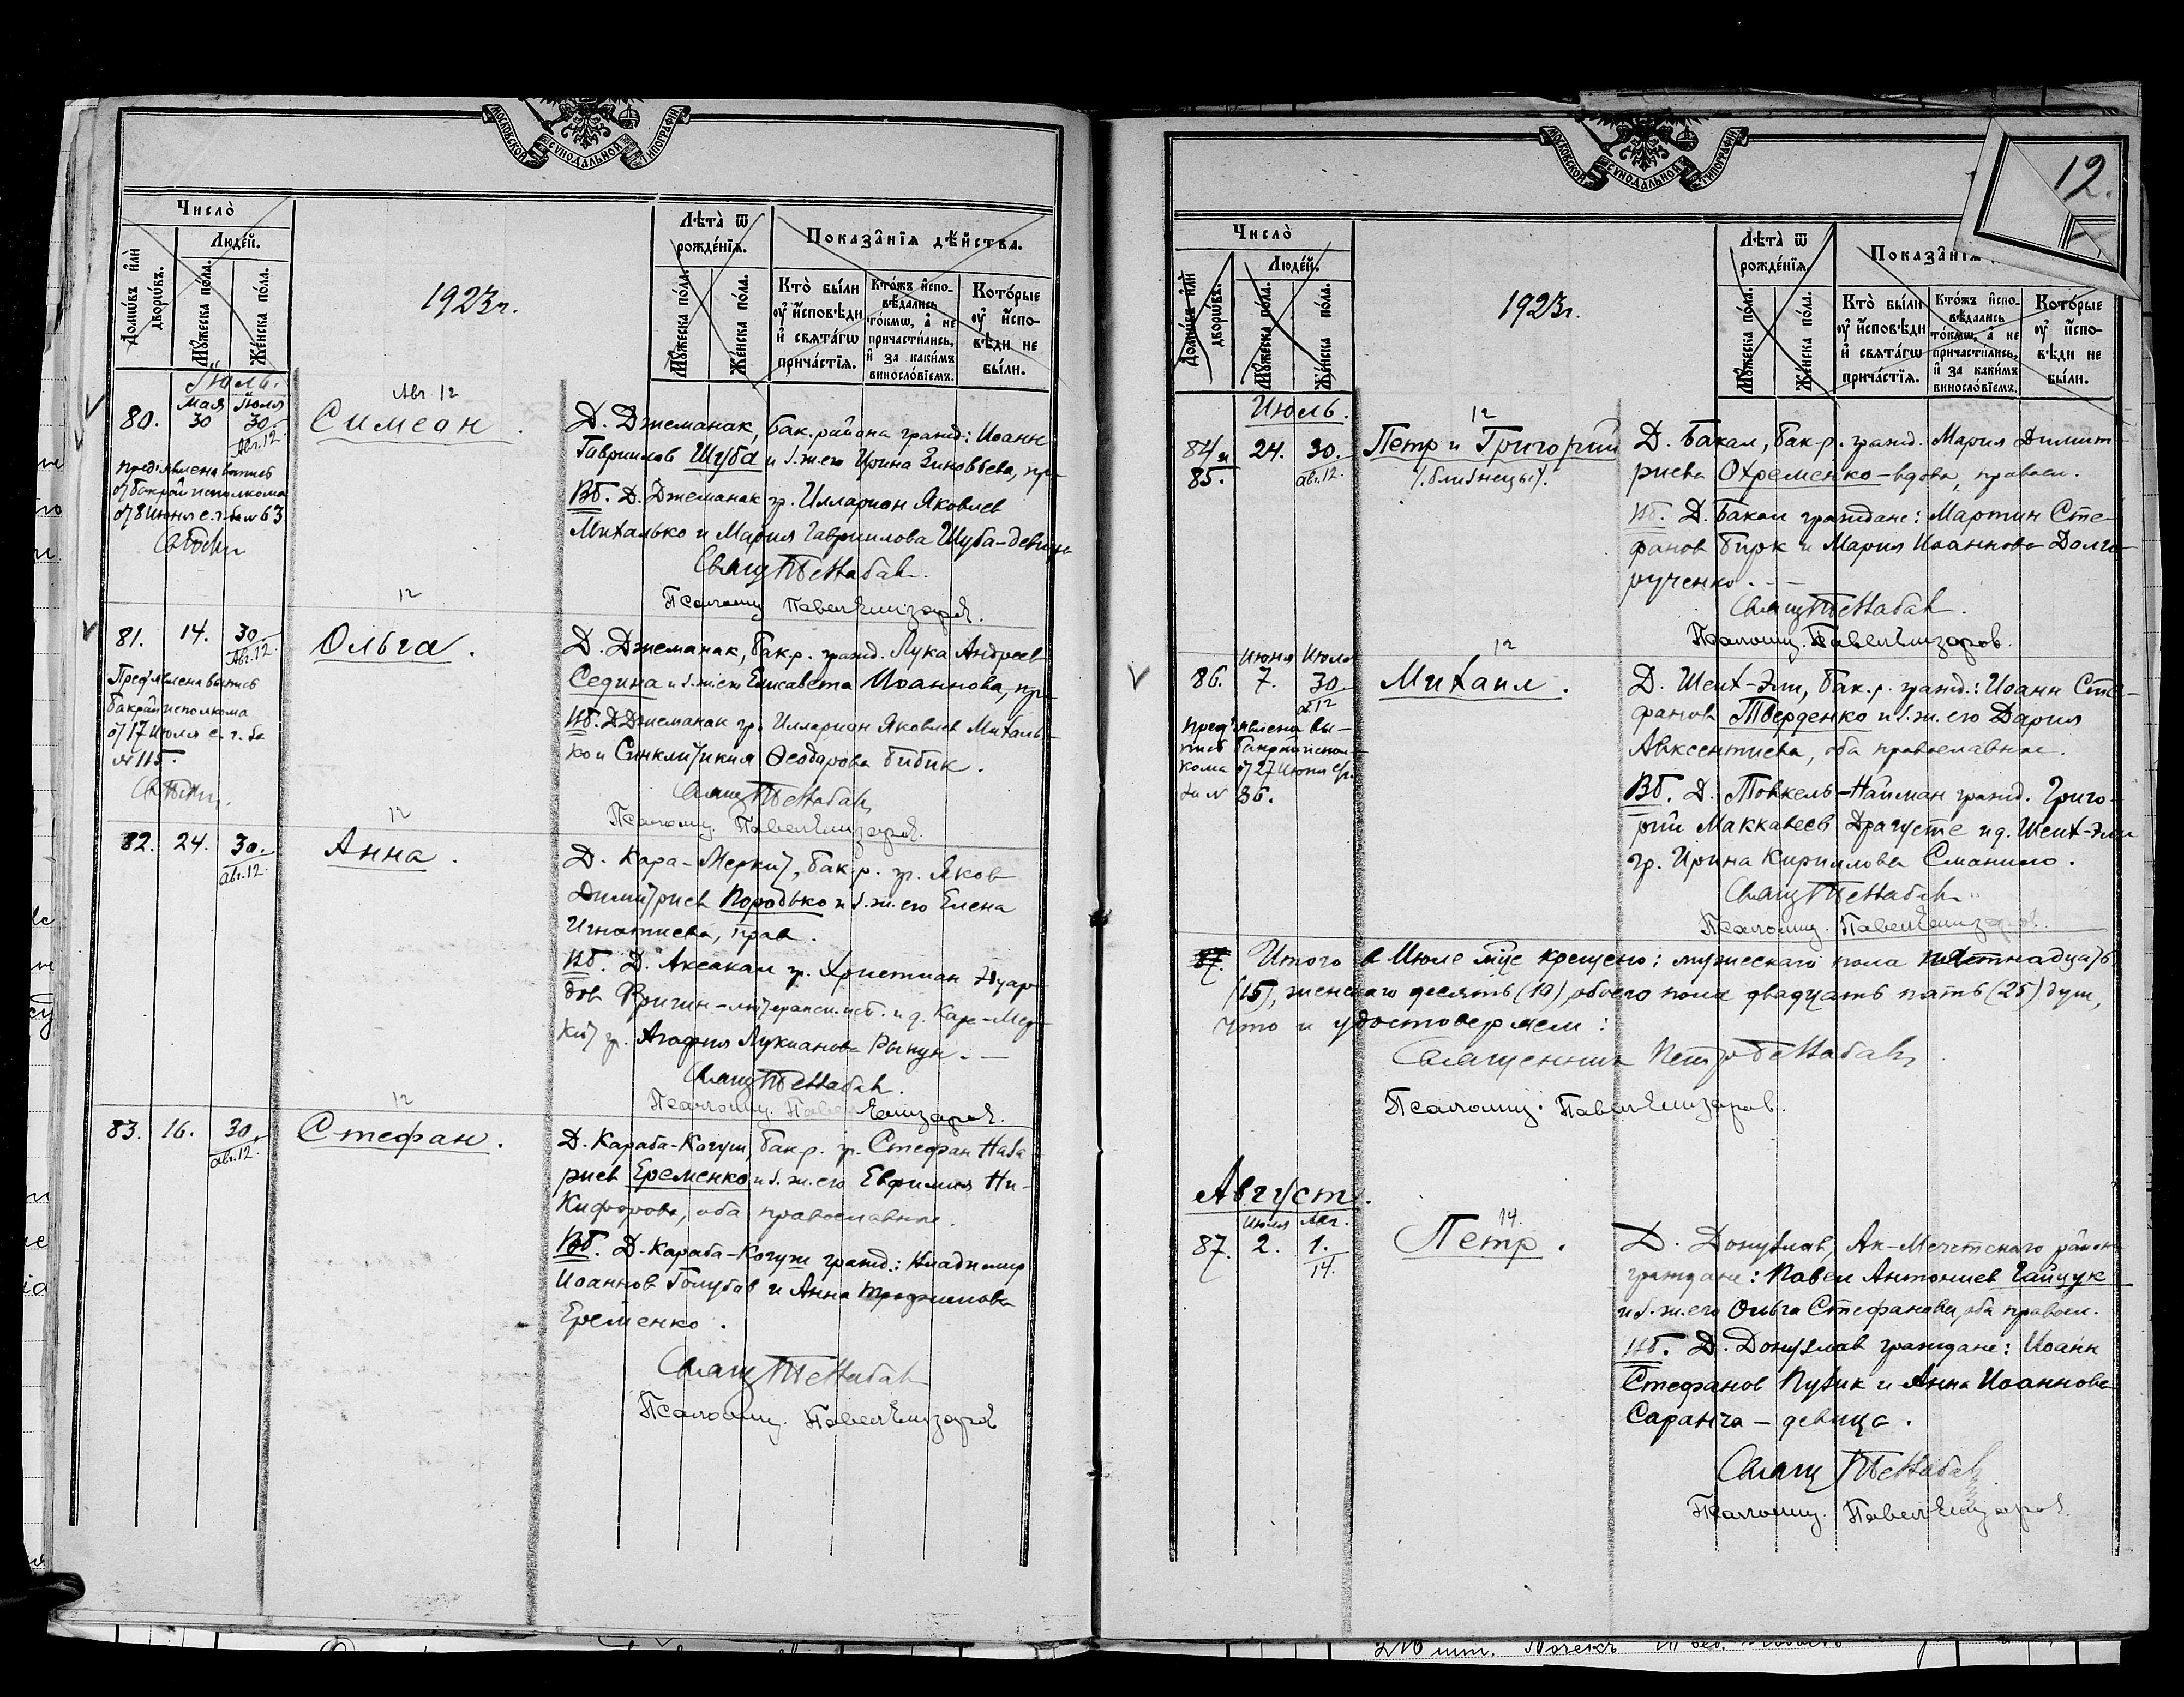 МОСКОВСКОЙ СѴНОДАЛЬНОЙ ТИПОГРАФІИ
Число̀
Людє́й.
Домѡ́въ и҆лѝ дворѡ́въ.
Мꙋ́жеска по́ла.
Же́нска по́ла.
1923г.
Лѣта̀ ѿ рожде́нїѧ.
Мꙋ́жеска по́ла.
Же́нска по́ла.
Показа̑нїѧ дѣ́йства.
Кто̀ бы́ли ᲂу҆ и҆сповѣ́ди и҆ свѧта́гѡ прича́стїѧ.
Кто́жъ и҆спо-вѣ́дались то́кмѡ, а҆ не причасти́лись, и҆ за каки́мъ виносло́вїемъ.
Кото́рые ᲂу҆ и҆спо-вѣ́ди не бы́ли.
Июль.
Мая Июля
80. 30 30. Авг. 12.
Авг 12
Симеон.
Предъявлена выпись
от бакрайисполкома
от 8 Июня с.г. за № 63
Д. Джеманак, Бак. района гражд: Иоанн
Гавриилов Шуба и з.ж. его Ирина Зиновьева, пр.
Вб. Д. Джеманак гр. Илларион Яковлев
Михалько и Мария Гавриилова Шуба-девица
Свящ.
Псаломщ. Павел Елизаров.
81. 14. 30 Авг. 12.
12
Ольга.
Предъявлена выпись
бакрайисполкома
от 17 Июля с. г. за
№ 115.
Д. Джеманак, бак р. гражд. Лука Андреев
Седина и з.ж. его Елисавета Иоаннова, пр.
Вб. Д. Джеманак гр. Илларион Яковлев Михаль-
ко и Синклитикия Феодорова Бибик.
Свящ.
Псаломщ. Павел Елизаров.
82. 24. 30. Авг. 12.
12
Анна.
Д. Кара-Меркит, бак. р. гр. Яков
Димитриев Породько и з.ж. его Елена
Игнатиева, прав.
Вб. Д. Аксакал гр. Христиан Эдуар-
дов - лютеранск. исп. и д. Кара-Мер-
кит гр. Агафия Лукианова
Свящ.
Псаломщ. Павел Елизаров.
83. 16. 30. Авг. 12.
12
Стефан.
Д. Караба-Когуш, бак р. гр. Стефан
Еременко и з.ж. его Евфимия Ни-
кифорова, оба православные.
Вб. Д. Караба-Когуш гражд.: Владимир
Иоаннов Голубов и Анна Трофимова
Еременко.
Свящ.
Псаломщ. Павел Елизаров
12.
МОСКОВСКОЙ СѴНОДАЛЬНОЙ ТИПОГРАФІИ
Число̀
Людє́й.
Домѡ́въ и҆лѝ дворѡ́въ.
Мꙋ́жеска по́ла.
Же́нска по́ла.
1923г.
Лѣта̀ ѿ рожде́нїѧ.
Мꙋ́жеска по́ла.
Же́нска по́ла.
Показа̑нїѧ
Кто̀ бы́ли ᲂу҆ и҆сповѣ́ди и҆ свѧта́гѡ прича́стїѧ.
Кто́жъ и҆спо-вѣ́дались то́кмѡ, а҆ не причасти́лись, и҆ за каки́мъ виносло́вїемъ.
Кото́рые ᲂу҆ и҆спо-вѣ́ди не бы́ли.
Июль.
84 и 85. 24. 30. Авг. 12.
12
Петр и Григорий
(близнецы).
Д. Бакал, бак. р. гражд. Мария Димит-
риева Охременко - вдова, правосл.
Вб. Д. Бакал граждане: Мартин Сте-
фанов Бирк и Мария Иоаннова Долго-
рученко.
Свящ.
Псаломщ. Павел Елизаров.
Июня Июля
86. 7. 30 а. 12
12
Михаил.
Предъявлена вы-
пись бакрайиспол-
кома от 27 Июня с/г.
за № 86.
Д. Шейх-Эли, бак. р. гражд.: Иоанн Сте-
фанов Тверденко и з.ж. его Дария
Авксентиева, оба православные.
Вб. Д. Товкель-Найман гражд. Григо-
рий Маккавеев Драгусте и д. Шейх-Эли
гр. Ирина Кириллова Сманило.
Свящ.
Псаломщ. Павел Елизаров.
87. Итого в Июле м-це крещено: мужескаго пола пятнадцать
(15), женскаго десять (10), обоего пола двадцать пять (25) душ,
что и удостоверяем:
Священник Петр
Псаломщ. Павел Елизаров.
Август.
Июля Авг.
87. 2. 1. 14.
14.
Петр.
Д. Донузлав, Ак-Мечетского района
граждане: Павел Антониев Гайчук
и з.ж. его Ольга Стефанова, оба правосл.
Вб. Д. Донузлав граждане: Иоанн
Стефанов Пузик и Анна Иоаннова
Саранча - девица.
Свящ.
Псаломщ. Павел Елизаров.